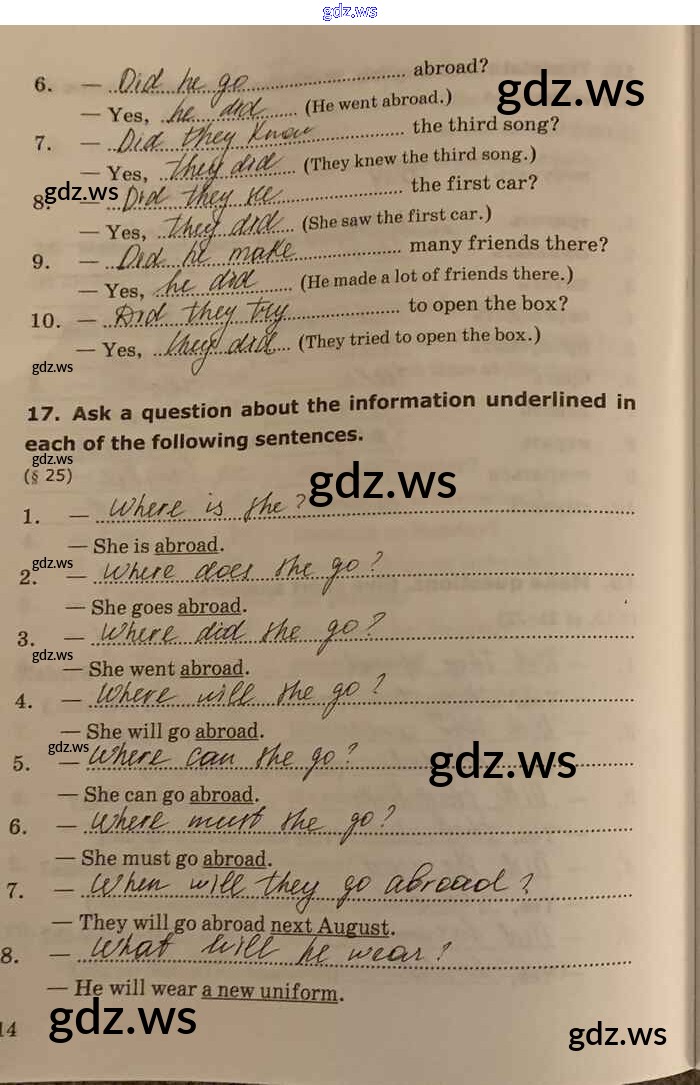 gdz.ws
6. — Did he go abroad?
gdz.ws
— Yes, he did (He went abroad.)
7. — Did they know the third song?
— Yes, they did (They knew the third song.)
gdz.ws
8. — Did they the first car?
— Yes, they did (She saw the first car.)
9. — Did he make many friends there?
— Yes, he did (He made a lot of friends there.)
10. — Did they try to open the box?
— Yes, they did (They tried to open the box.)
gdz.ws
17. Ask a question about the information underlined in
each of the following sentences.
gdz.ws
(§ 25)
gdz.ws
1. — Where is she?
— She is abroad.
gdz.ws
2. — Where does she go?
— She goes abroad.
3. — Where did she go?
gdz.ws
— She went abroad.
4. — Where will she go?
— She will go abroad.
gdz.ws
5. — Where can she go?
gdz.ws
— She can go abroad.
6. — Where must she go?
— She must go abroad.
7. — When will they go abroad?
— They will go abroad next August.
8. — What will he wear?
— He will wear a new uniform.
gdz.ws
14
gdz.ws